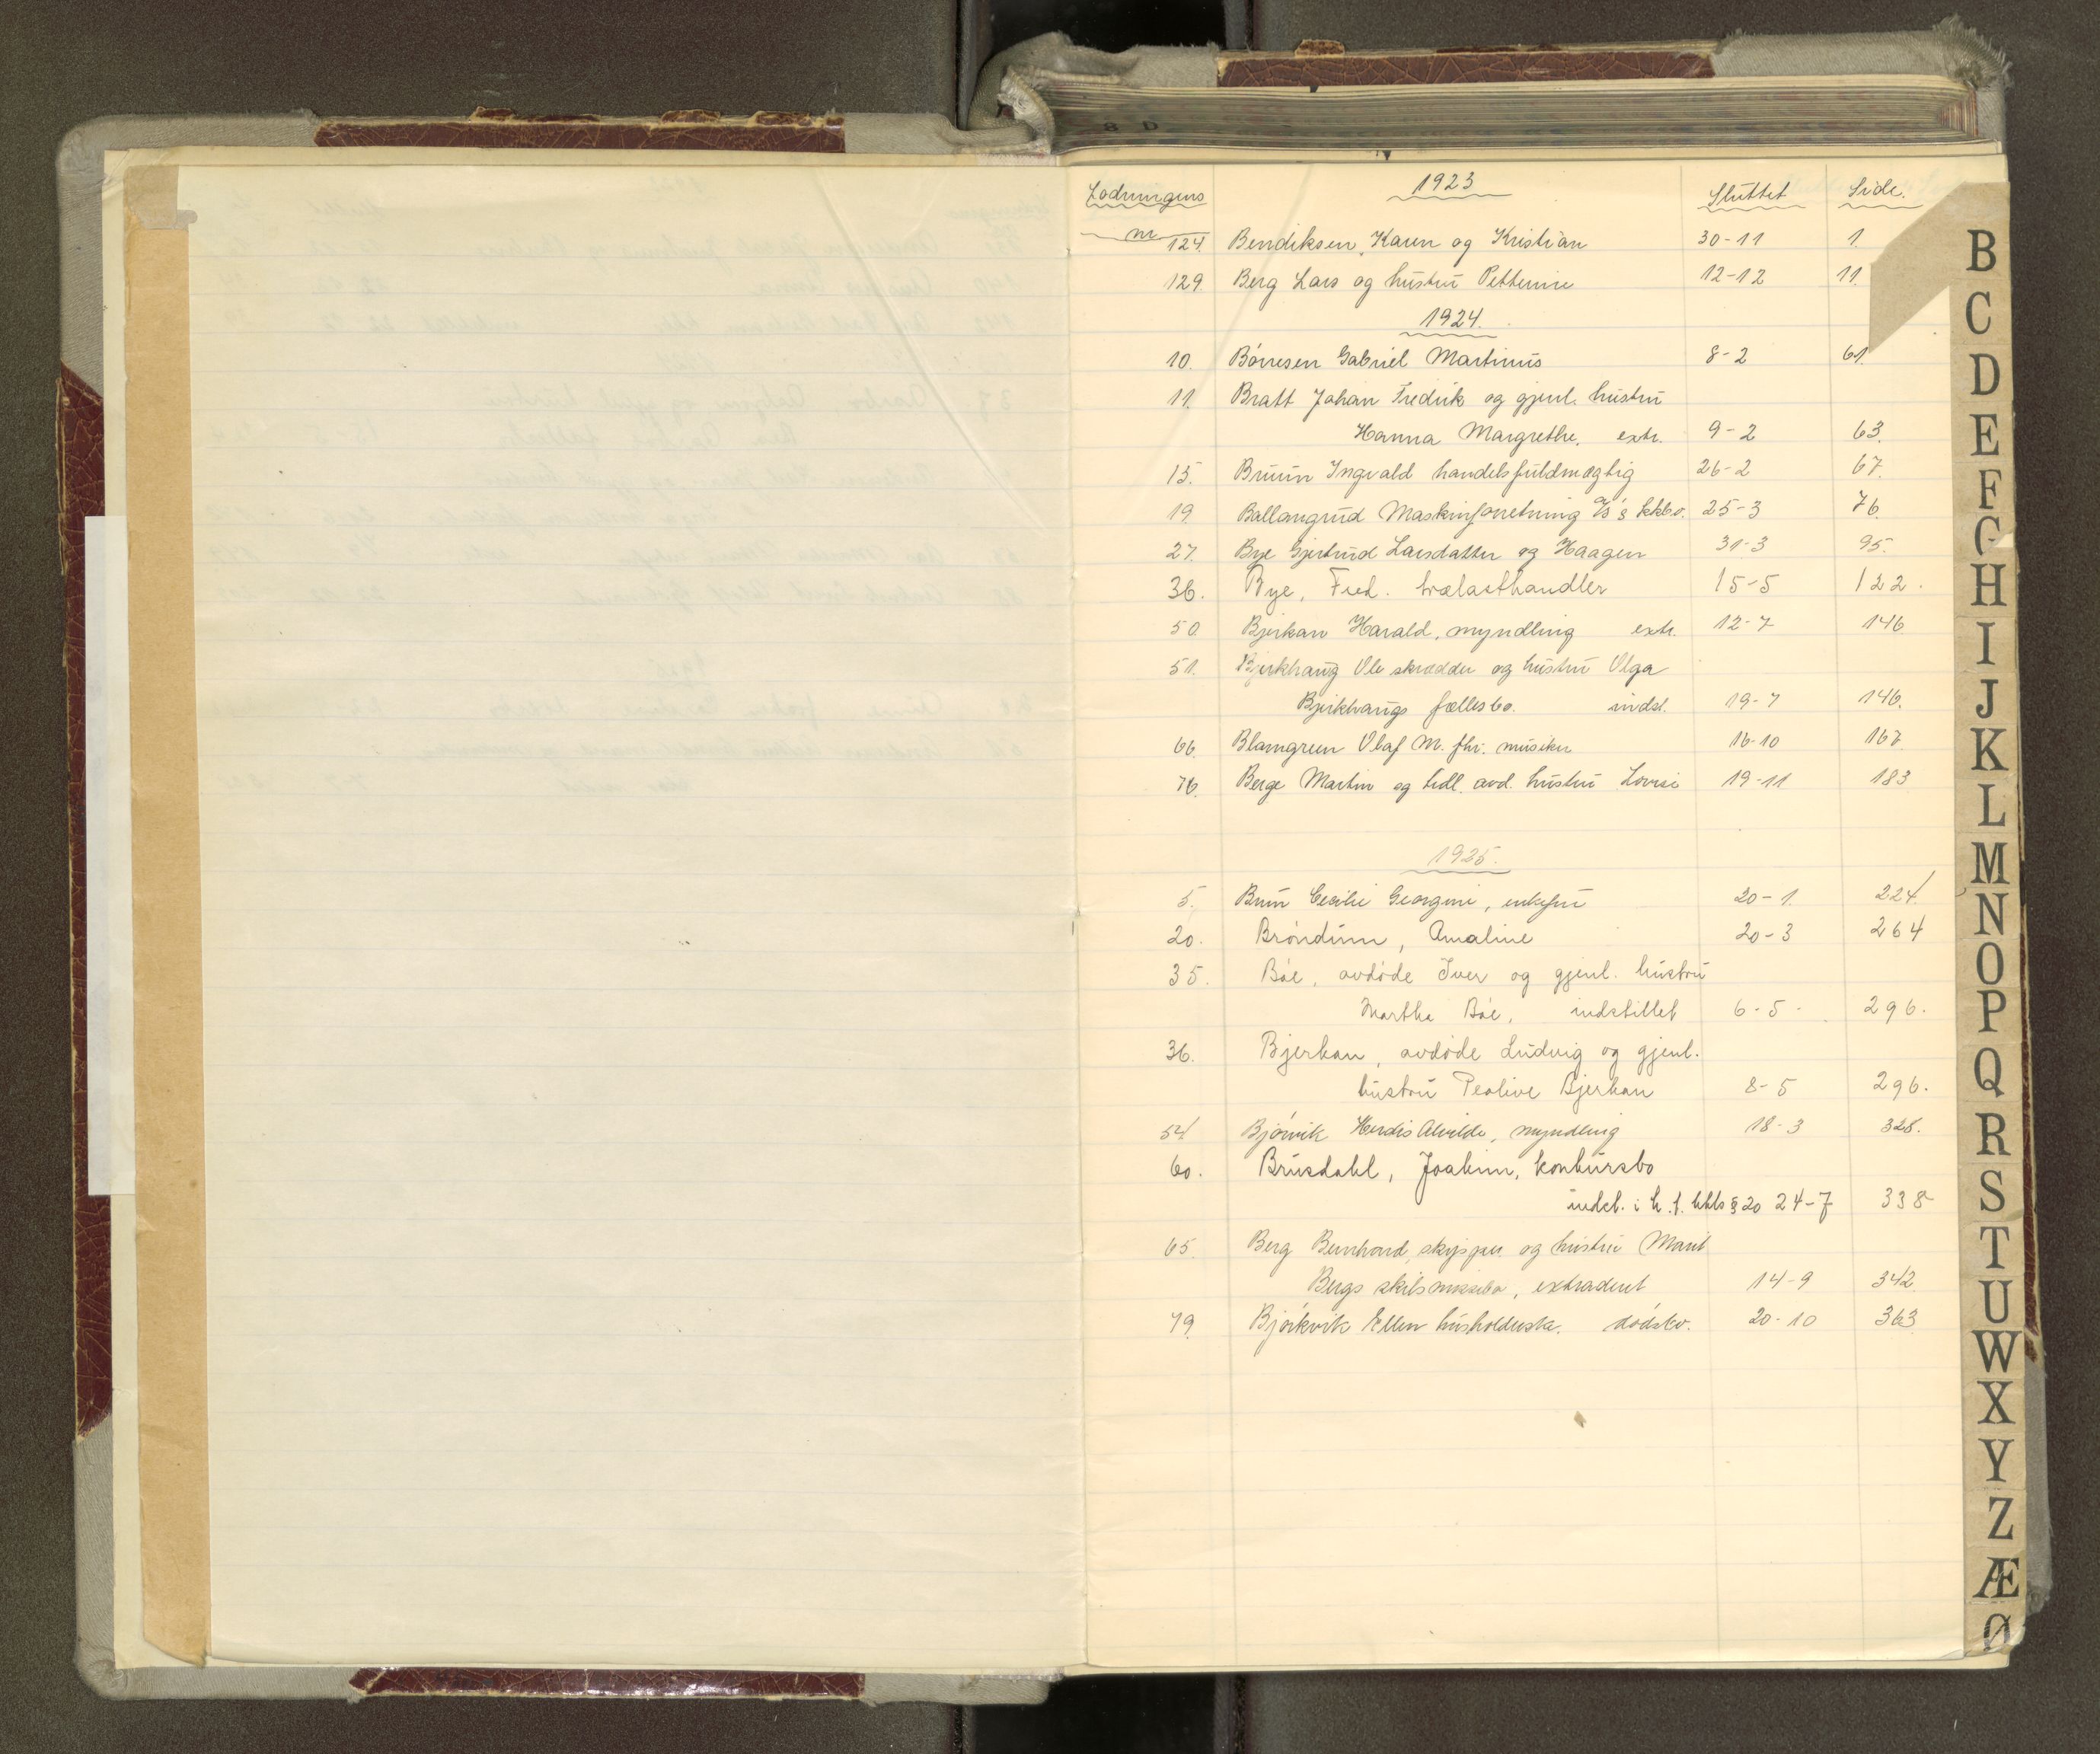 8 D
Lodningens 1923 Sluttet Side.
nr
124. Bendiksen, Karen og Kristian 30-11 1.
129. Berg Lars og hustru Petterine 12-12 11.
1924.
10. Börresen Gabriel Martinus 8-2 61.
11. Bratt Johan Fredrik og gjenl. hustru
Hanna Margrethe. extr. 9-2 63.
15. Bruun Ingvald handelsfuldmægtig 26-2 67.
19. Ballangrud Maskinforretning A/S's kkbo. 25-3 76.
27. Bye Gjertrud Larsdatter og Haagen 31-3 95.
36. Bye, Fred. trælasthandler 15-5 122.
50. Bjerkan Harald, myndling extr. 12-7 146
51. Bjerkhaug Ole skrædder og hustru Olga
Bjerkhaugs fællesbo. indst. 19-7 146.
66. Blamgreen Olaf M. fhv. musiker 16-10 167
76. Berge Martin og tidl. avd. hustru Lovise 19-11 183
1925.
5. Bruun Cecilie Georgine, enkefru 20-1. 224.
20. Bröndum, Amaline 20-3 264
35. Böe, avdöde Iver og gjenl. hustru
Marthe Böe, indstillet 6-5- 296.
36. Bjerkan, avdöde Ludvig og gjenl.
hustru Peolive Bjerkan 8-5 296.
54. Bjönvik Herdis Alvilde, myndling 18-3 328.
60. Brusdahl, Joakim, konkursbo
indst. i h.t. kkls § 20 24-7 338
65. Berg Bernhard, skipper og hustru Marit
Bergs skilsmissebo, extradert 14-9 342.
79. Björkvik Ellen husholderske. dödsbo. 20-10 363
B
C
D
E
F
G
H
I
J
K
L
M
N
O
P
Q
R
S
T
U
W
X
Y
Z
Æ
Ø